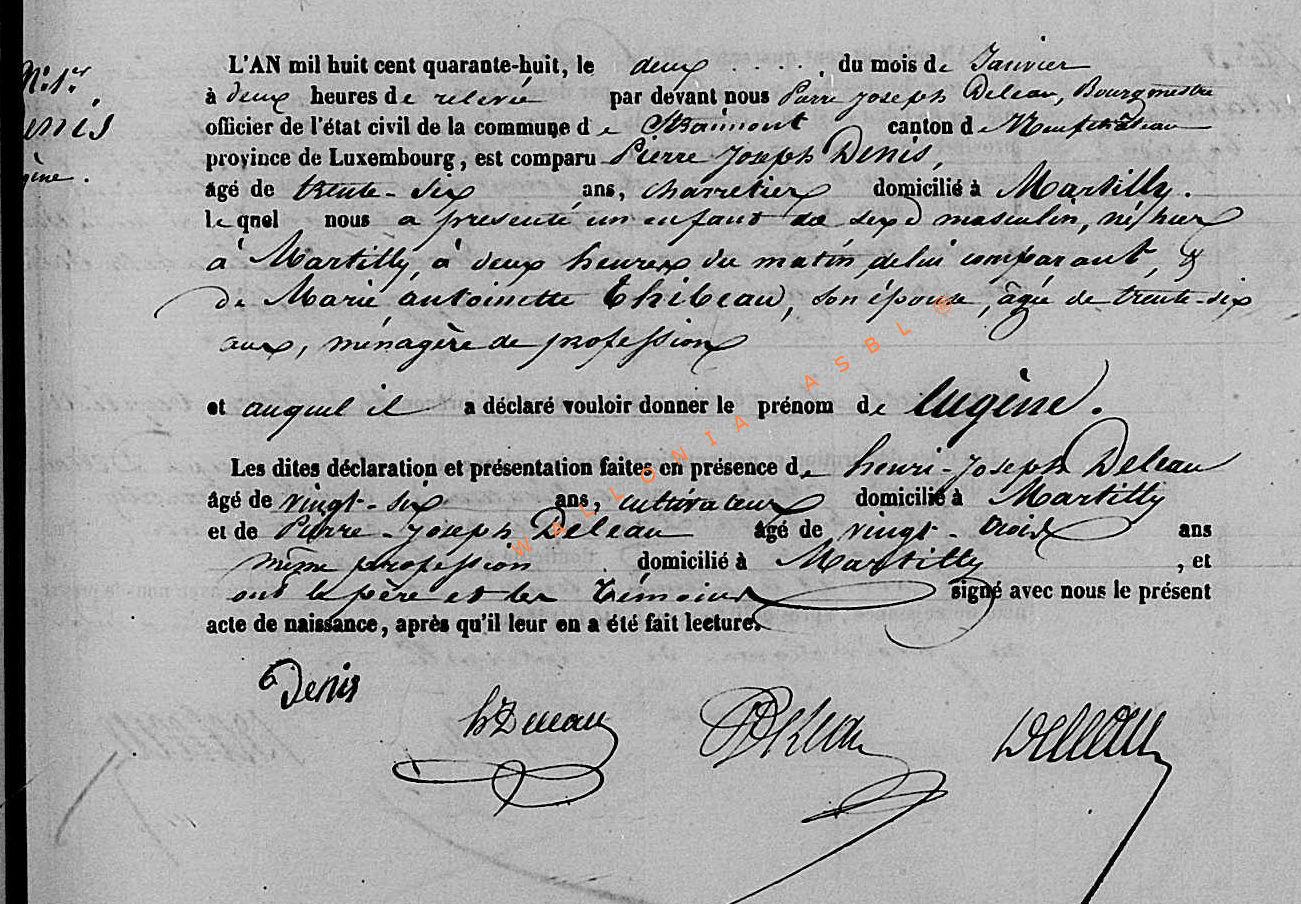 N° 1er
Denis
gène.
L'AN mil huit cent quarante-huit, le deux . . . . . du mois de Janvier
à deux heures de relevée par devant nous Pierre Joseph Deleau, Bourgmestre
officier de l'état civil de la commune de Straimont canton de Neufchâteau
province de Luxembourg, est comparu Pierre Joseph Denis,
âgé de trente-six ans, charretier domicilié à Martilly.
le quel nous a presenté un enfant de sexe masculin, né hier
à Martilly, à deux heures du matin, de lui comparant, &
de Marie antoinette Thibeau, son épouse, âgée de trente-six
ans, ménagère de profession
et auquel il a déclaré vouloir donner le prénom de Eugène.
Les dites déclaration et présentation faites en présence de henri-Joseph Deleau
âgé de vingt-six ans, cultivateur domicilié à Martilly
et de Pierre-Joseph Deleau âgé de vingt-trois ans
même profession . domicilié à Martilly , et
ont le père et les témoins signé avec nous le présent
acte de naissance, après qu'il leur en a été fait lecture.
Denis
h Deleau
PJ Deleau
Deleau
WALLONIA ASBL ®